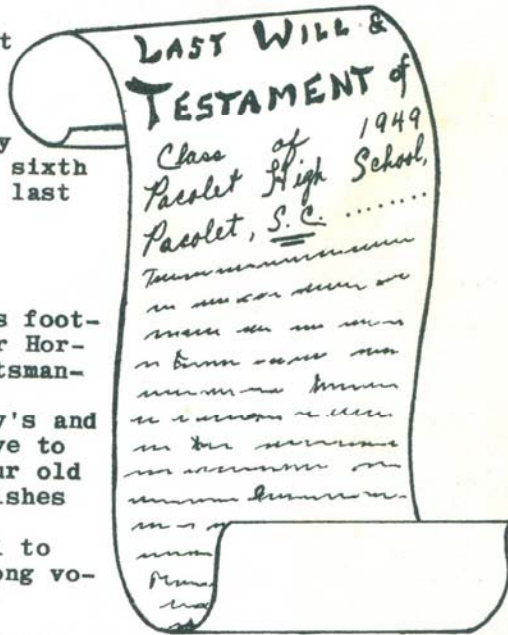 t
y
sixth
last
s foot-
r Hor-
tsman-
y's and
ve to
ur old
ishes
l to
ong vo-
LAST WILL &
TESTAMENT of
Class of 1949
Pacolet High School,
Pacolet, S.C. ........